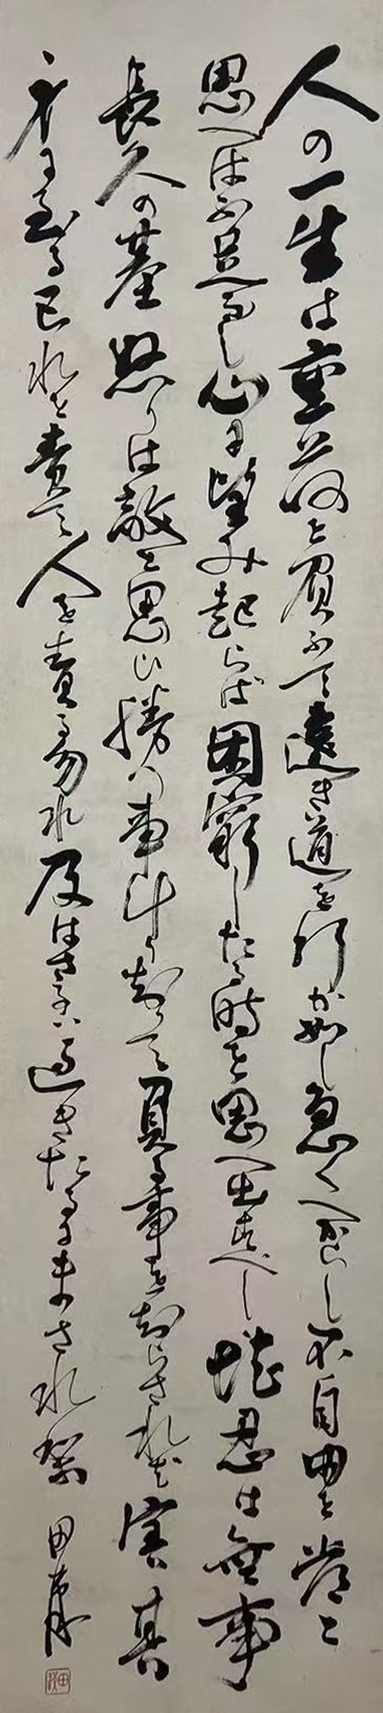 人の一生は重荷を負ふて遠き道を行が如し急くへからし不自由を常と
思へは不足なし心に望み起らば困窮したる時を思へ出すべし堪忍は無事
長久の基怒りは敵と思ひ勝つ事斗り知りて負る事を知らされは害其
身に至る己れを責て人を責る勿れ及はさるは過きたるにまされり